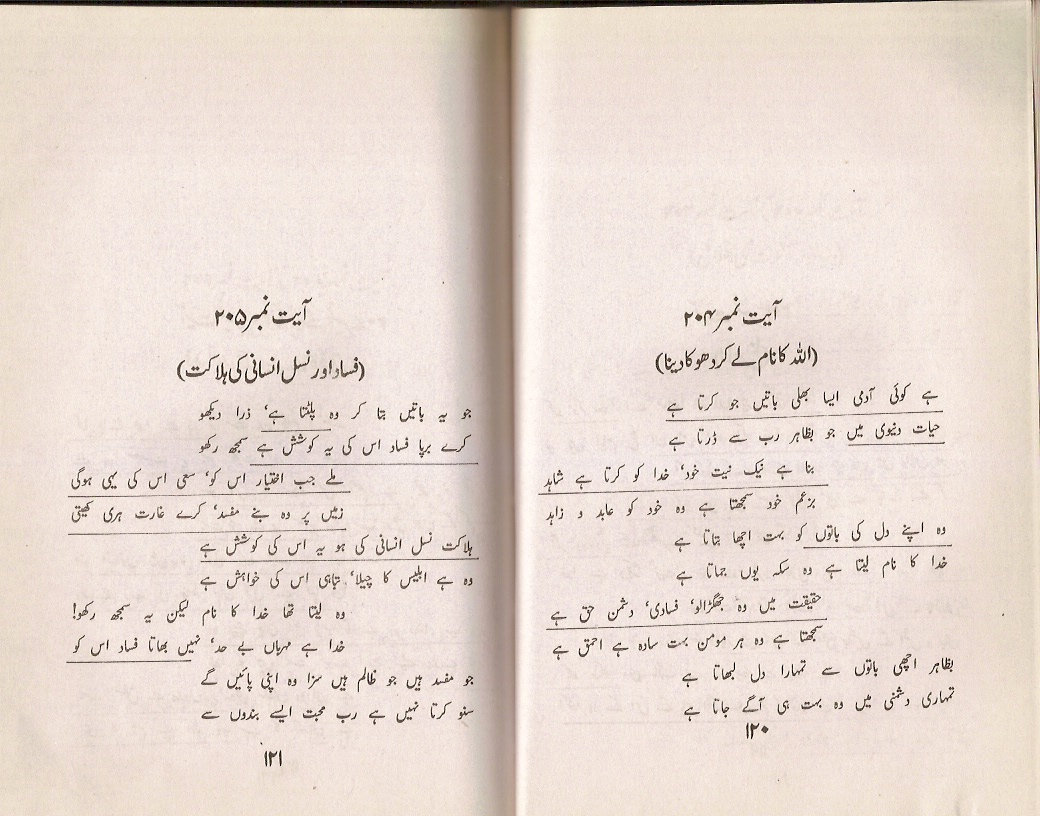 آیت نمبر ۲۰۴
(اللہ کا نام لے کر دھوکا دینا)
ہے کوئی آدمی ایسا بھلی باتیں جو کرتا ہے
حیات دنیوی میں جو بظاہر رب سے ڈرتا ہے
بنا ہے نیک نیت خود، خدا کو کرتا ہے شاہد
بزعم خود سمجھتا ہے وہ خود کو عابد و زاہد
وہ اپنے دل کی باتوں کو بہت اچھا بتاتا ہے
خدا کا نام لیتا ہے وہ سکہ یوں جماتا ہے
حقیقت میں وہ جھگڑالو، فسادی، دشمن حق ہے
سمجھتا ہے وہ ہر مومن بہت سادہ ہے احمق ہے
بظاہر اچھی باتوں سے تمہارا دل لبھاتا ہے
تمہاری دشمنی میں وہ بہت ہی آگے جاتا ہے
۱۲۰
آیت نمبر ۲۰۵
(فساد اور نسل انسانی کی ہلاکت)
جو یہ باتیں بتا کر وہ پلٹتا ہے، ذرا دیکھو
کرے برپا فساد اس کی یہ کوشش ہے سمجھ رکھو
ملے جب اختیار اس کو، سعی اس کی یہی ہوگی
زمیں پر وہ بنے مفسد، کرے غارت ہری کھیتی
ہلاکت نسل انسانی کی ہو یہ اس کی کوشش ہے
وہ ہے ابلیس کا چیلا، تباہی اس کی خواہش ہے
وہ لیتا تھا خدا کا نام لیکن یہ سمجھ رکھو!
خدا ہے مہرباں بے حد، نہیں بھاتا فساد اس کو
جو مفسد ہیں جو ظالم ہیں سزا وہ اپنی پائیں گے
سنو کرتا نہیں ہے رب محبت ایسے بندوں سے
۱۲۱